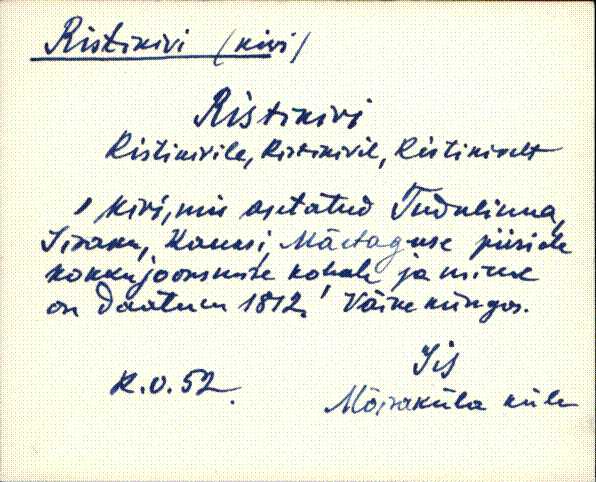 Ristikivi (kivi)
Ristikivi
Ristikivile, Ristikivil, Ristikivilt
" kivi, mis asetatud Tudulinna,
Iisaku, Kauksi, Mäetaguse piiride
kokkujooksmise kohale ja
on Daatum 1812." Väike küngas.
Iis
K.V.52.
küla